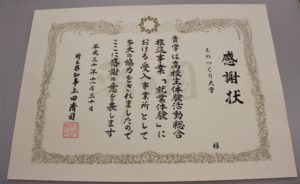 感謝状
ものつくり大学
様
貴学は高校生体験活動総合
推進事業「就業体験」に
おける受入事業所として
多大の協力をされましたので
ここに感謝の意を表します
平成三十年十一月三十日
埼玉県知事上田清司